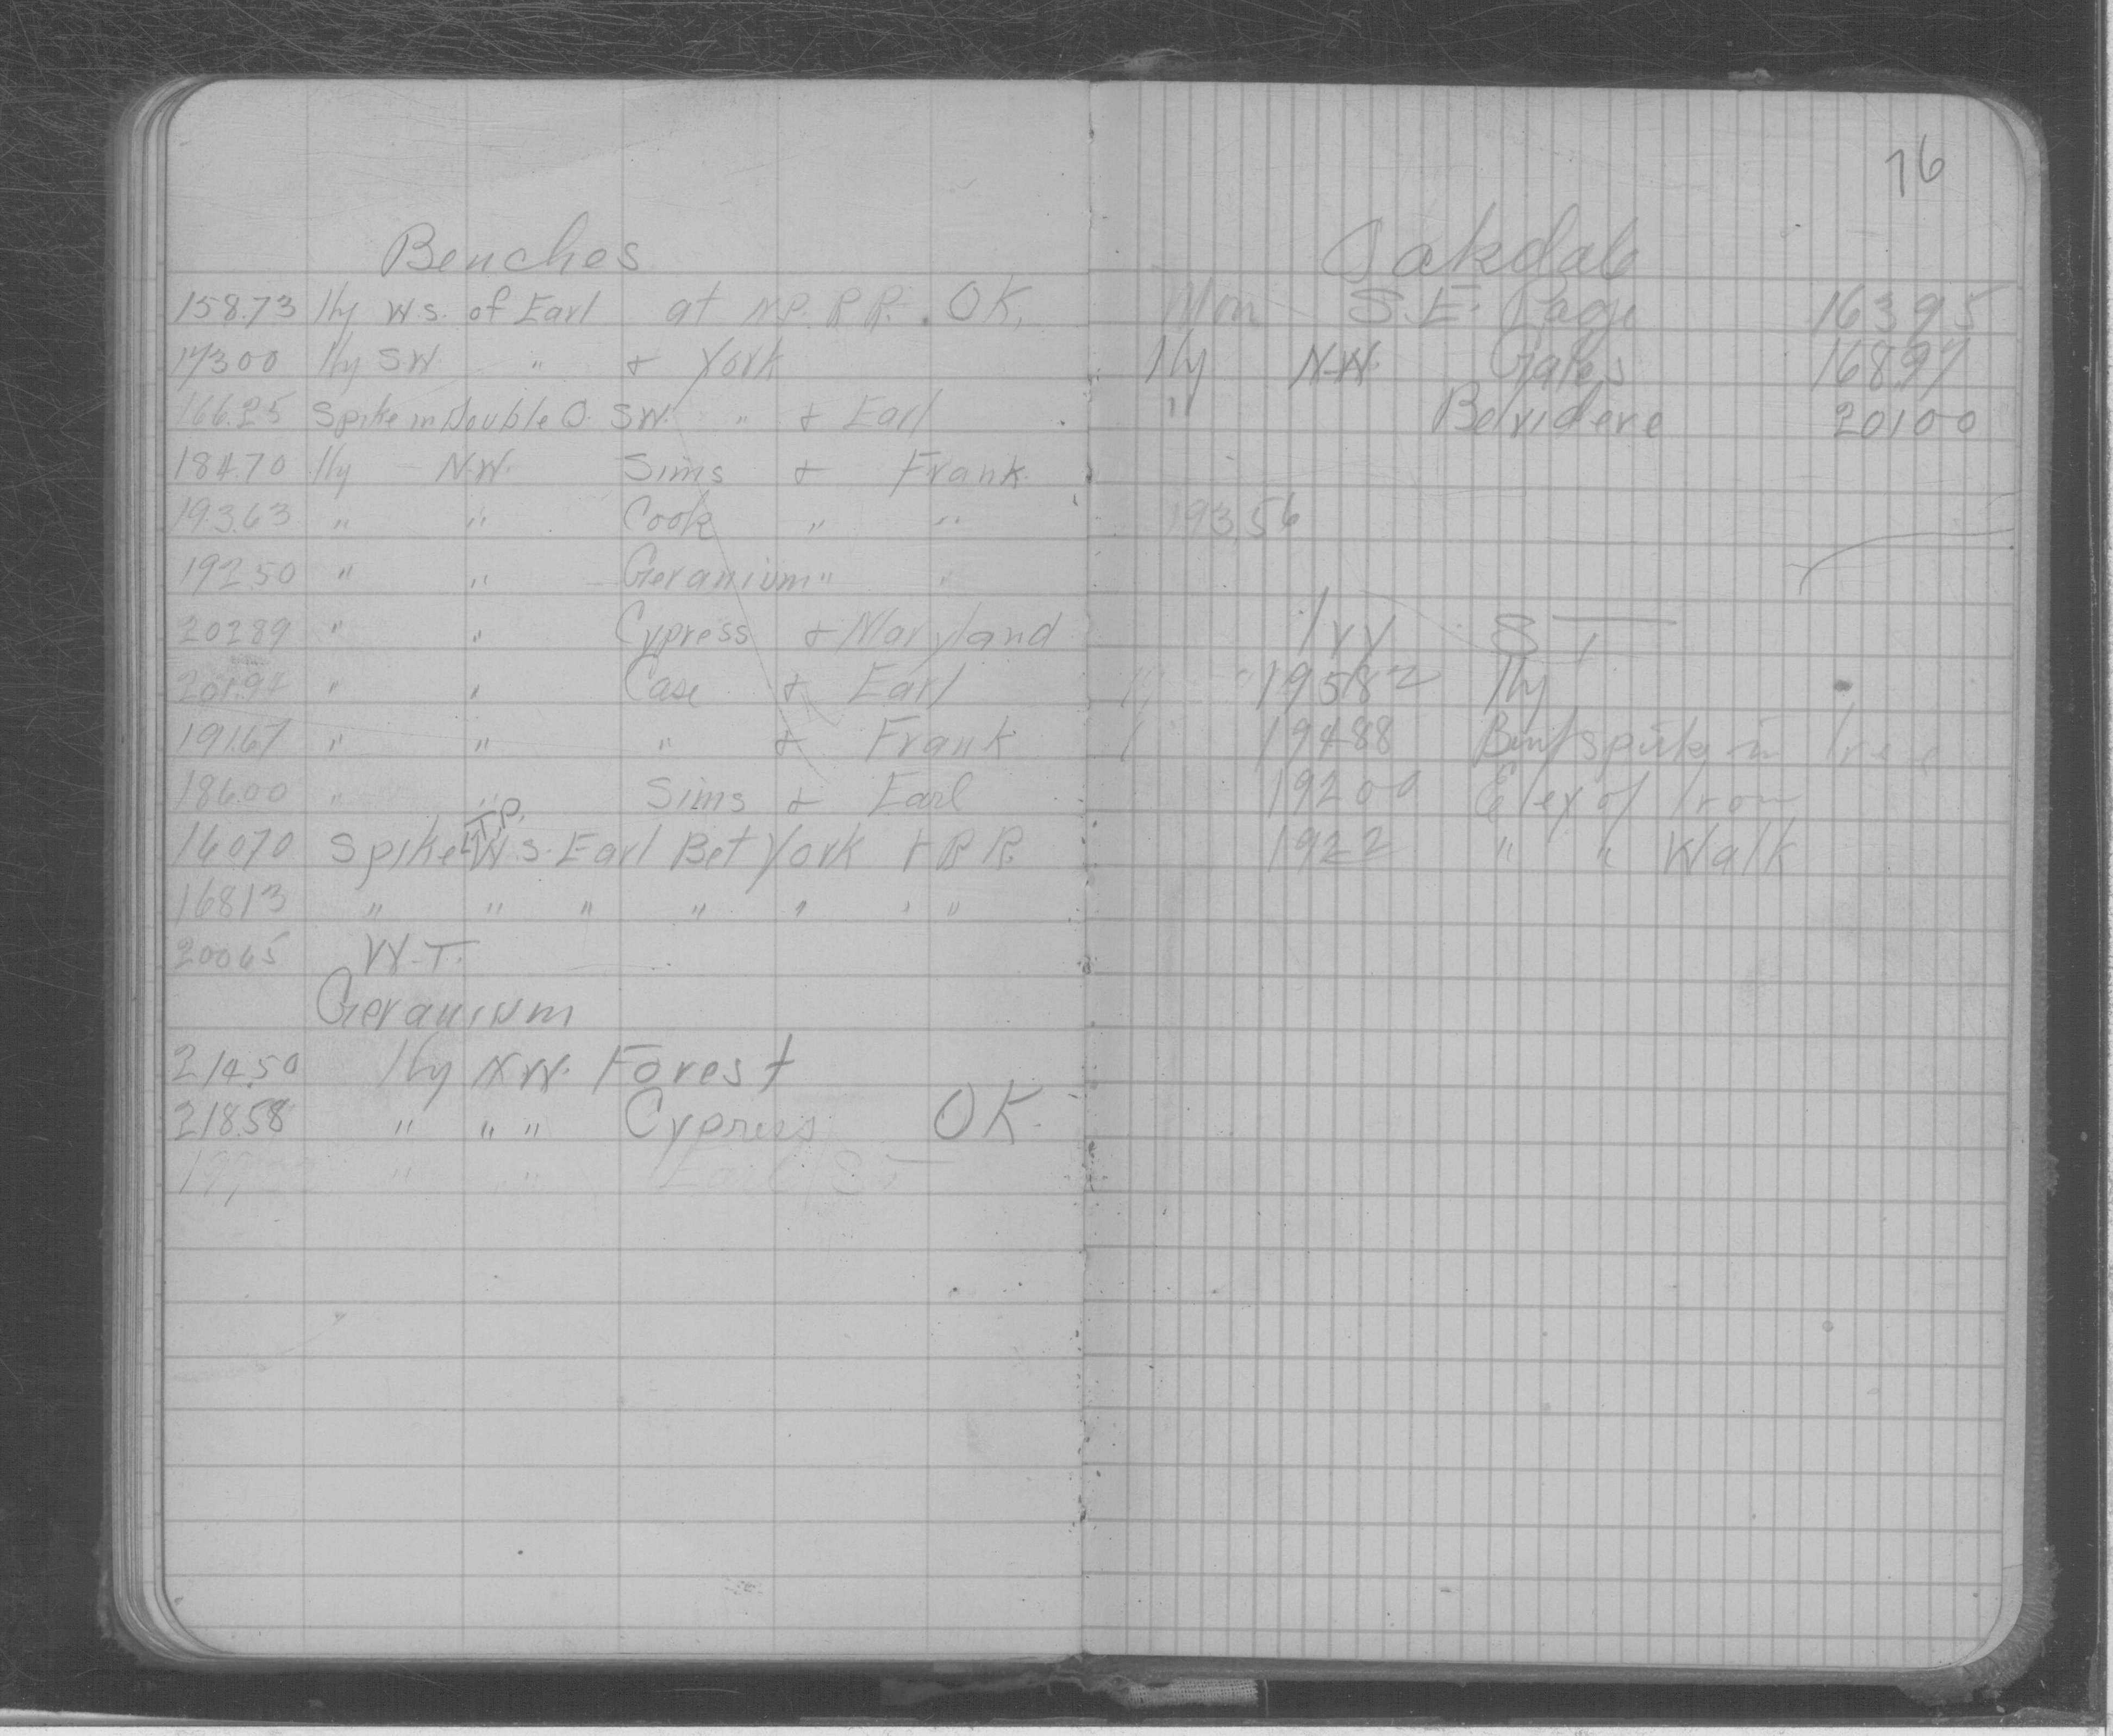 Benches
158.73 Hy W s. of Earl at N.P. R R. . OK.
173 00 Hy SW. " & York
166.25 Spike in Double O. SW. " & Earl
184.70 Hy - N.W. Sims & Frank.
193.63 " " Cook " "
192 50 " " Geranium " "
202 89 " " Cypress & Maryland
201.94 " " Case & Earl
191.67 " " " & Frank
186.00 " " Sims & Earl
160 70 Spike T.P. W s. Earl Bet York & R R.
168 13 " " " " " " "
200 65 W-T.
Geranium
214.50 Hy N W. Forest
218.58 " " " Cypress OK.
" " " Earl ST
76
Oakdale
Mon S.E. Page 163 95
Hy N-W. Gates 168.97
" Belvidere 201 00
193.56
Ivy ST
195 82 Hy
194 88 Bent spike in tree
192 00 Elev of Iron
192 2 " " Walk